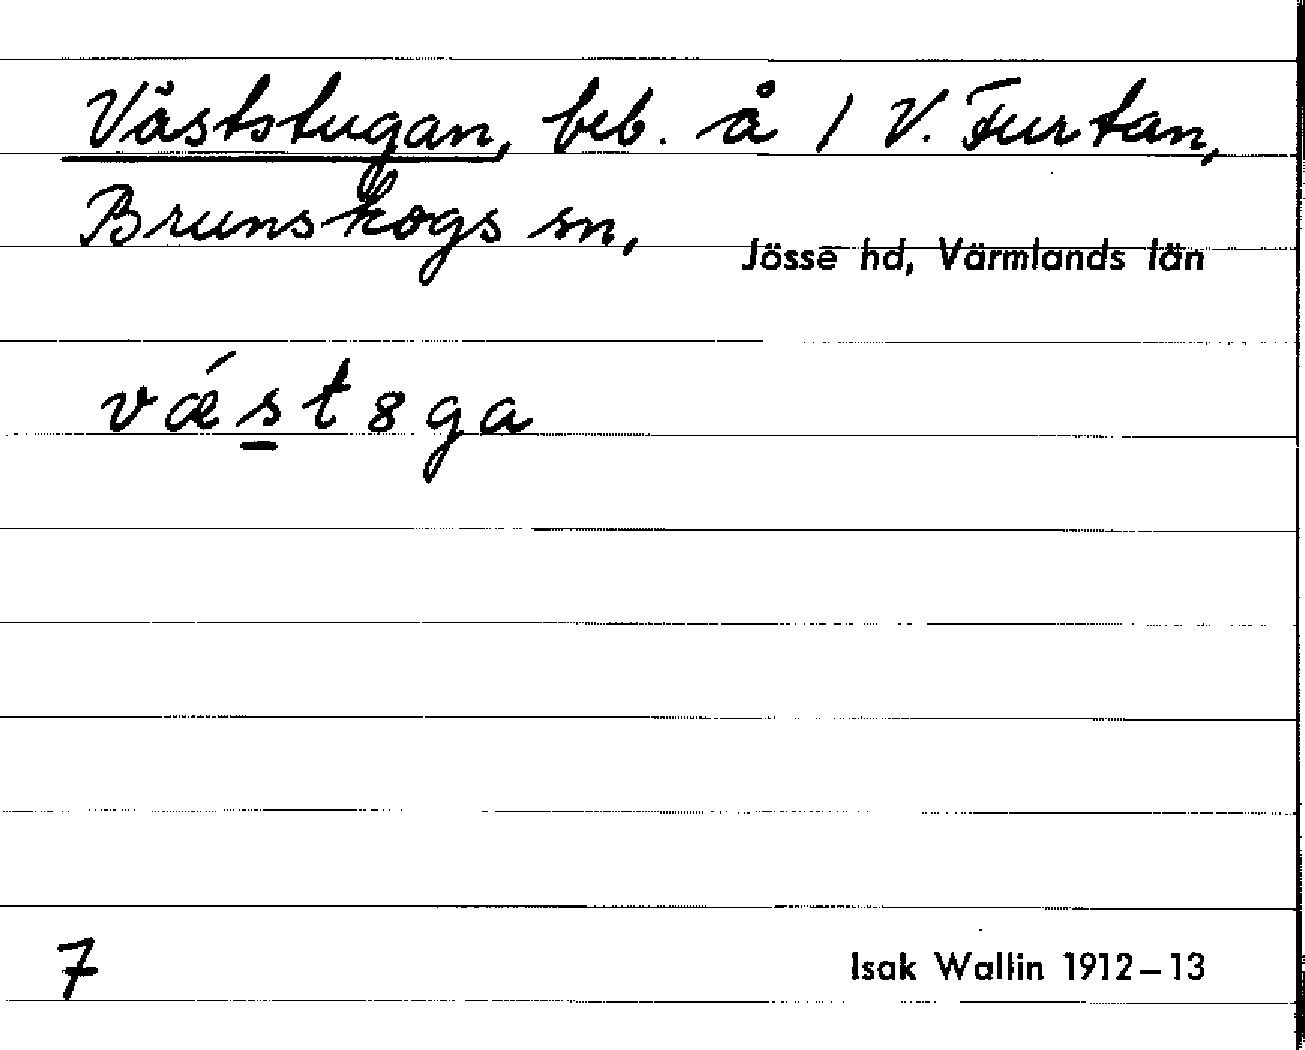 Väststugan, beb. å 1 V. Furtan,
Brunskogs sn,
Jösse hd, Värmlands län
vǽst8ga
7
Isak Wallin 1912–13